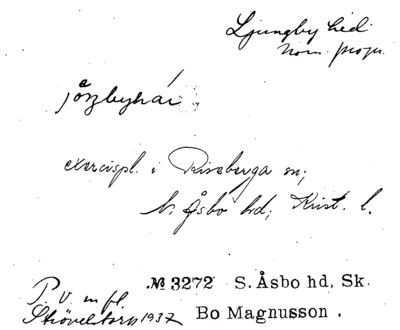 Ljungby hed
nom. propr.
exercispl. i Riseberga sn;
N. Åsbo hd; Krist. l.
№ 3272 S. Åsbo hd, Sk.
P. V. m fl.
Strövelstorp 1937
Bo Magnusson.